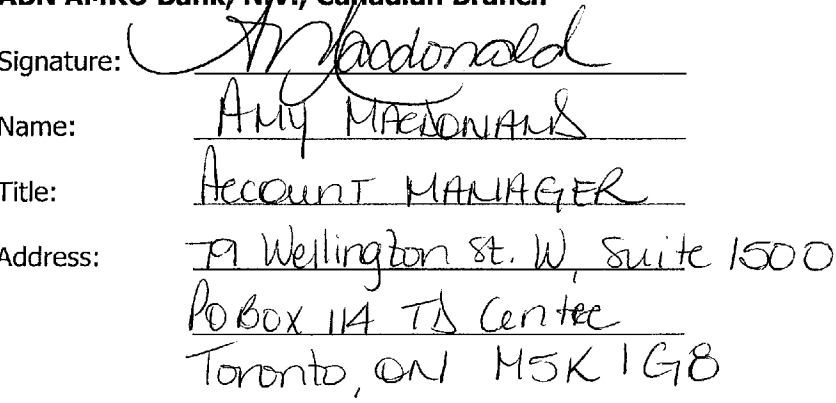 ABN AMRO Bank, N.V., Canadian Branch
Signature: A Macdonald
Name: AMY MACDONALD
Title: Account MANAGER
Address: 79 Wellington St. W, Suite 1500
PO BOX 114 TD Centre
Toronto, ON M5K 1G8